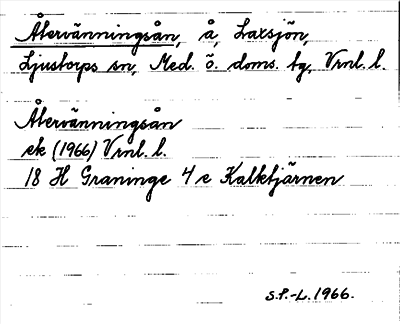 Återvänningsån, å, Laxsjön,
Ljustorps sn, Med. ö. doms. tg, Vrnl. l.
Återvänningsån
ek (1966) Vrnl. l.
18 H Graninge 4 e Kalktjärnen
S.P.-L. 1966.